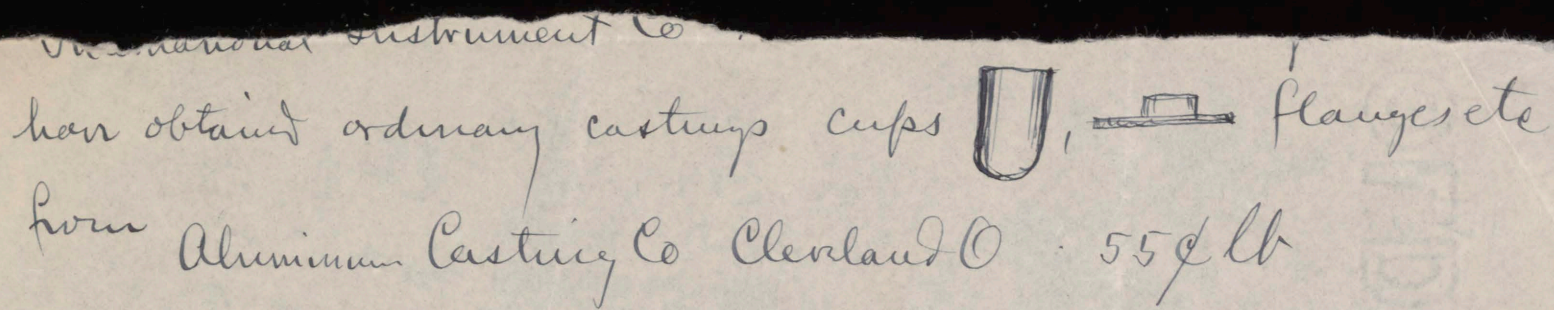 Instrument Co
have obtained ordinary castings cups , flanges etc
from Aluminum Casting Co Cleveland O . 55¢ lb